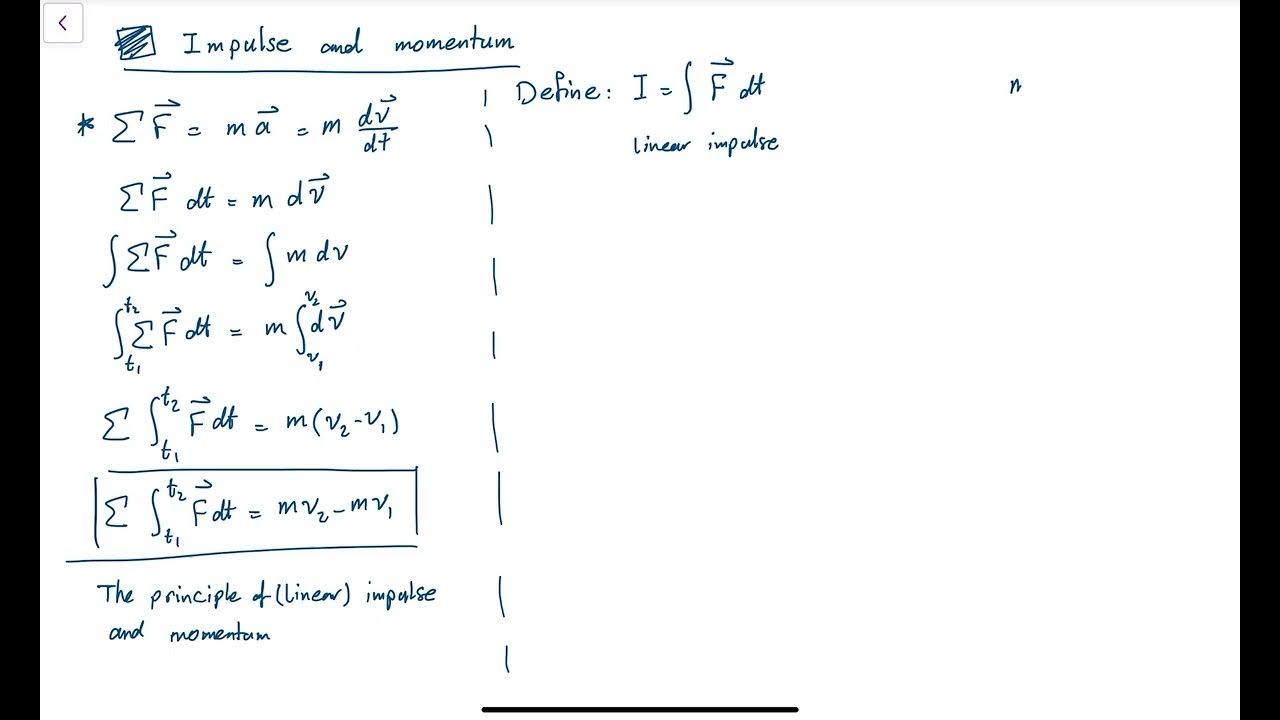 Impulse and momentum
* Σ F⃗ = m a⃗ = m dv⃗/dt
Σ F⃗ dt = m dv⃗
∫ Σ F⃗ dt = ∫ m dv
∫_{t₁}^{t₂} Σ F⃗ dt = m ∫_{v₁}^{v₂} dv⃗
Σ ∫_{t₁}^{t₂} F⃗ dt = m(v₂-v₁)
Σ ∫_{t₁}^{t₂} F⃗ dt = mv₂ - mv₁
The principle of (linear) impulse
and momentum
Define: I = ∫ F⃗ dt
linear impulse